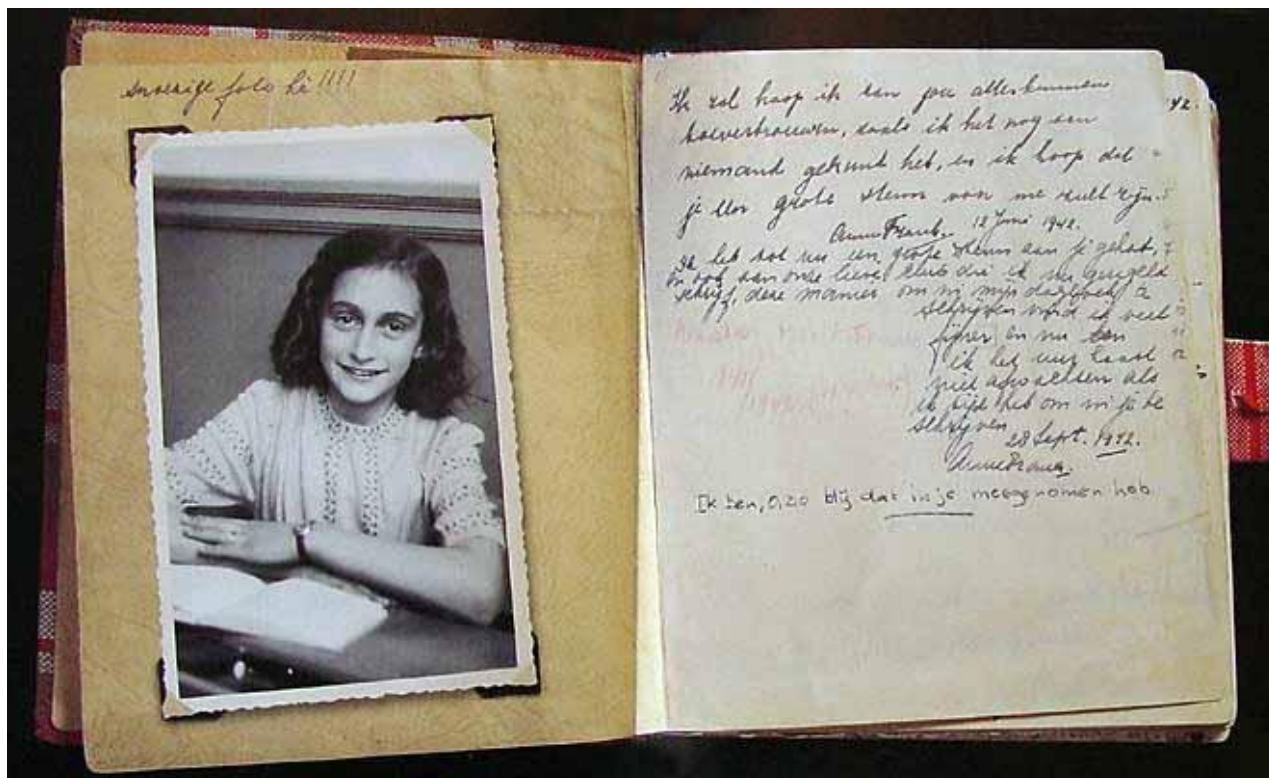 snoezige foto hè!!!!
Ik zal hoop ik aan jou alles kunnen
toevertrouwen, zoals ik het nog aan
niemand gekund heb, en ik hoop dat
je een grote steun voor me zult zijn.
Anne Frank. 12 Juni 1942.
Ik heb tot nu een grote steun aan je gehad,
en ook aan onze lieve club die ik nu geregeld
schrijf, deze manier om in mijn dagboek te
schrijven vind ik veel
fijner en nu kan
ik het uur haast
niet afwachten als
ik tijd heb om in je te
schrijven
28 Sept. 1942.
Anne Frank.
Ik ben, O, zo blij dat ik je meegenomen heb
42.